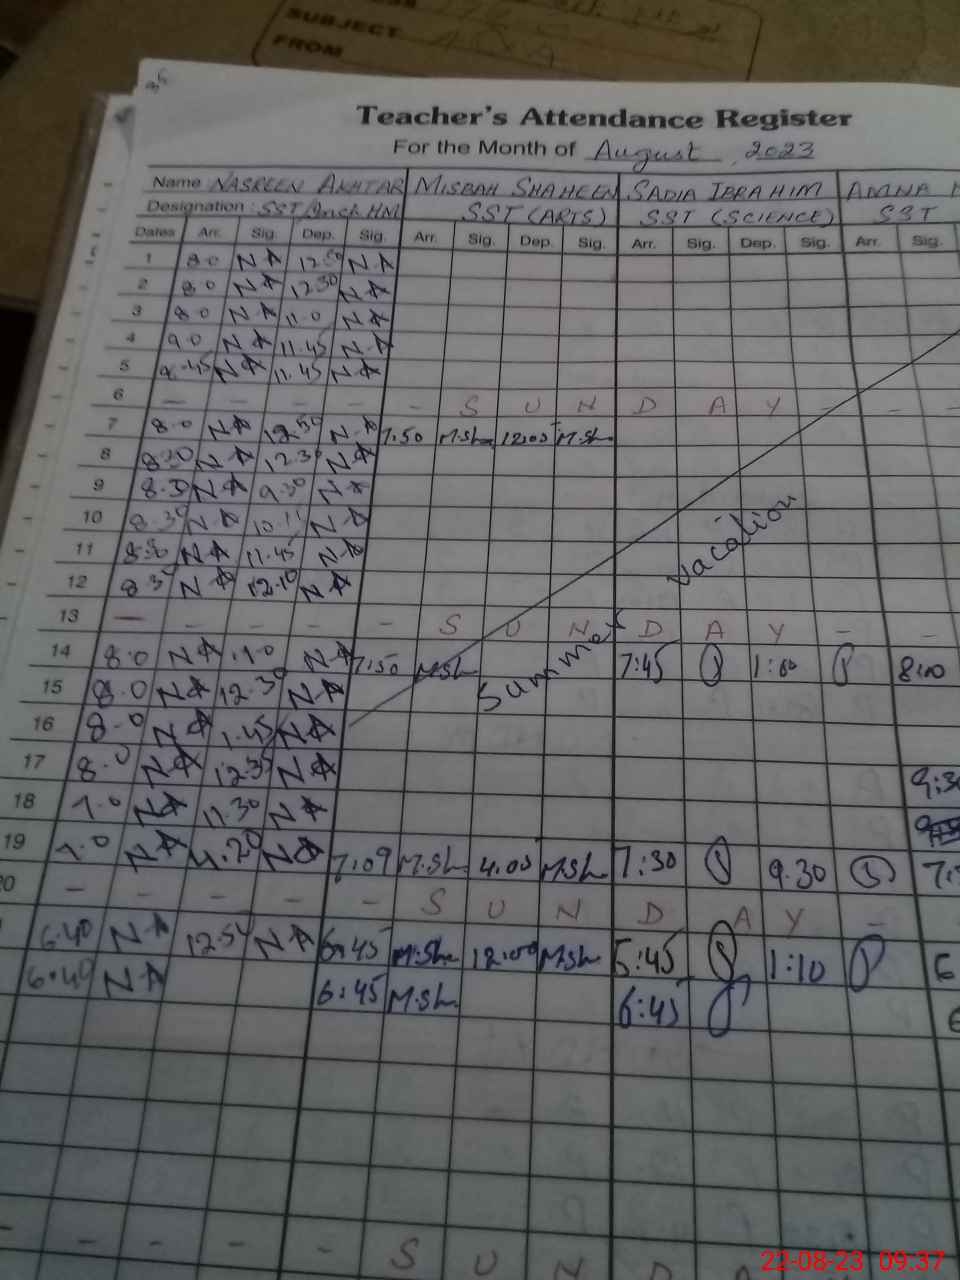 SUBJECT
FROM
Teacher's Attendance Register
For the Month of August 2023
Name NASREEN AKHTAR MISBAH SHAHEEN SADIA IBRAHIM AMNA
Designation: SST HM SST (ARTS) SST (SCIENCE) SST
Dates Arr. Sig. Dep. Sig. Arr. Sig. Dep. Sig. Arr. Sig. Dep. Sig. Arr. Sig.
1 8.0 NA 12.30 NA
2 8.0 NA 12.30 NA
3 8.0 NA 11.0 NA
4 9.0 NA 11.45 NA
5 NA 11.45 NA
6 - - - - - S U N D A Y - - -
7 8.0 NA 12.50 NA 7.50 M.Sh 12:05 M.Sh
8 8.30 NA 12.30 NA
9 8.30 NA 9.30 NA
10 8.30 NA NA
11 8.30 NA 11.45 NA
12 8.30 NA 12.10 NA
13 - - - - - S U N D A Y - -
14 8.0 NA 1.0 NA 7:50 M.Sh 7:45 1:00 8:00
15 8.0 NA 12.30 NA
16 8.0 NA 1.45 NA
17 8.0 NA 12.35 NA 9:30
18 7.0 NA 11.30 NA
19 7.0 NA 4.20 NA 7:09 M.Sh 4.05 M.Sh 7:30 9.30
20 - - - - - S U N D A Y -
6.40 NA 12.50 NA 6:45 M.Sh 12:00 M.Sh 6:45 1:10 6
6.40 NA 6:45 M.Sh 6:45 6
Summer Vacation
- - - - - S U N D A
22-08-23 09:37